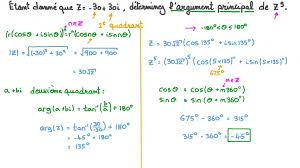 Étant donné que Z = -30 + 30i, détermine l'argument principal de Z⁵.
n∈Z
2ᵉ quadrant
(r(cosθ + isinθ))ⁿ = rⁿ(cosnθ + isinnθ)
|Z| = √((-30)² + 30²) = √(900 + 900)
= 30√2
a + bi deuxième quadrant:
arg(a + bi) = tan⁻¹(b/a) + 180°
arg(z) = tan⁻¹(30/-30) + 180°
= -45° + 180°
= 135°
-180° < θ ≤ 180°
Z = 30√2 (cos135° + isin135°)
Z⁵ = (30√2)⁵ (cos(5×135°) + isin(5×135°))
675°
n∈Z
cosθ = cos(θ + m360°)
sinθ = sin(θ + m360°)
675° - 360° = 315°
315° - 360° = -45°